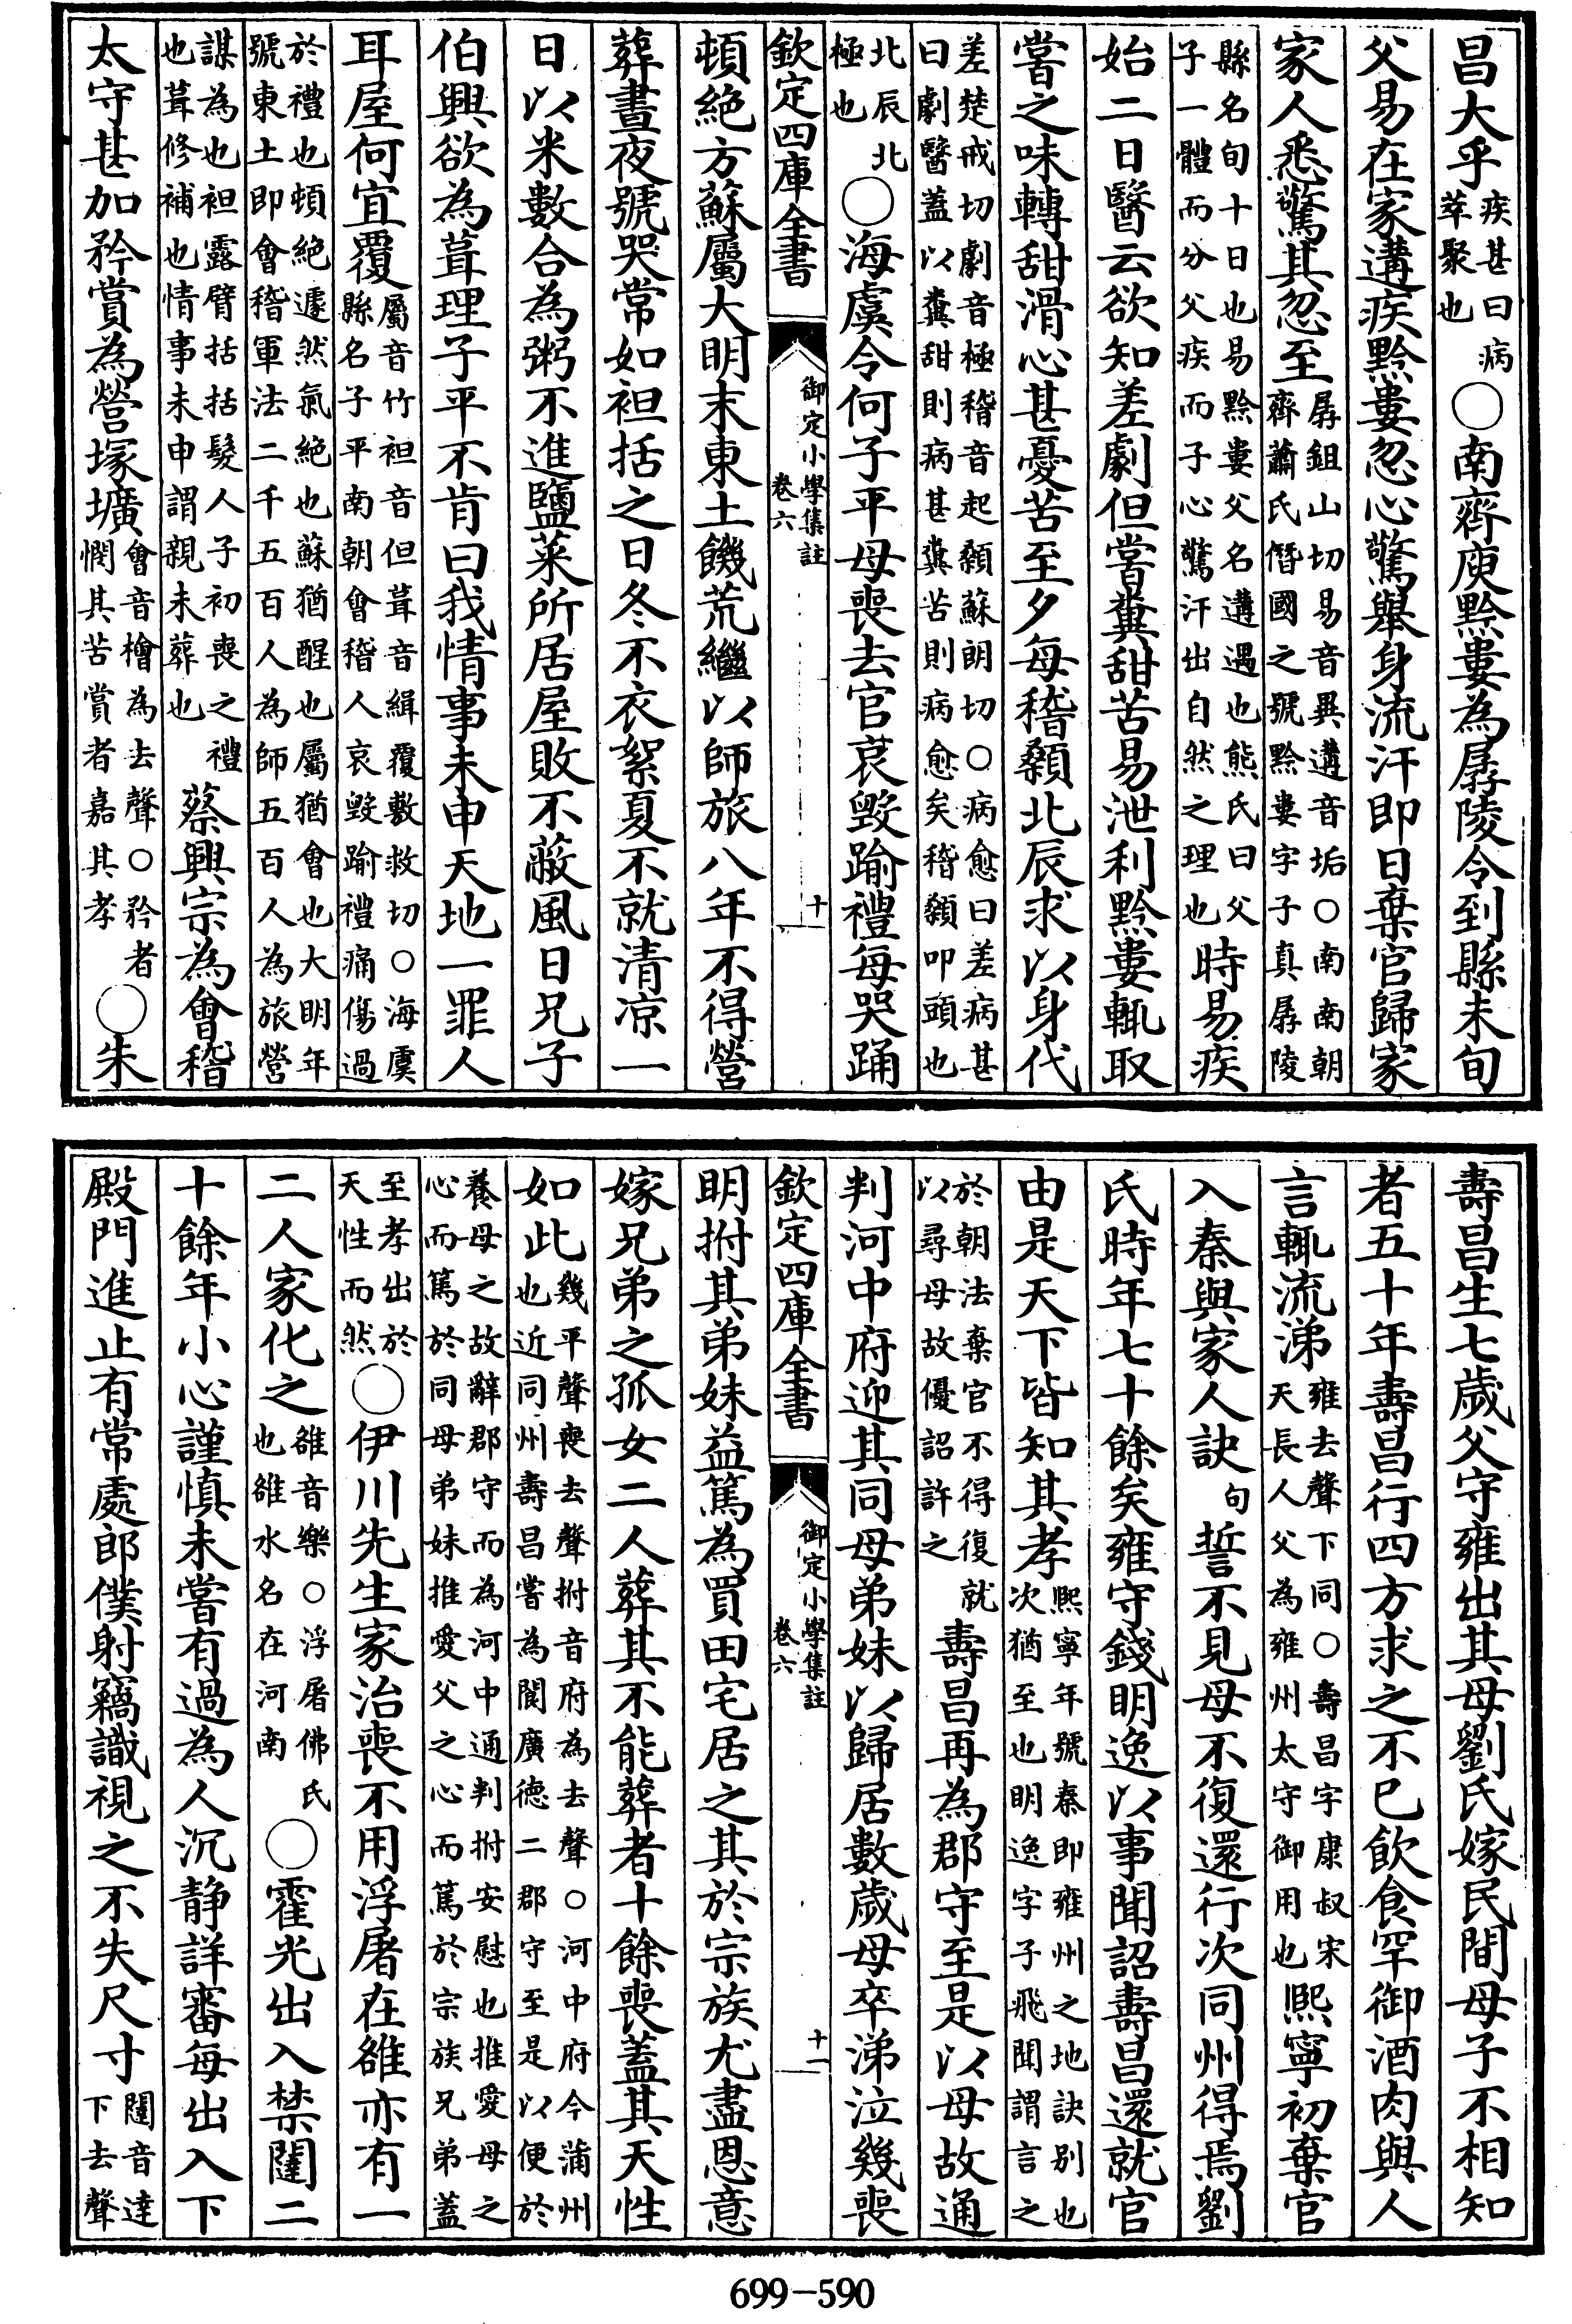 昌大乎疾甚曰病萃聚也○南齊庾黔婁為孱陵令到縣未旬
父易在家遘疾黔婁忽心驚舉身流汗即日棄官歸家
家人悉驚其忽至孱鉏山切易音異遘音垢○南南朝齊蕭氏僭國之號黔婁字子真孱陵
縣名旬十日也易黔婁父名遘遇也熊氏曰父子一體而分父疾而子心驚汗出自然之理也時易疾
始二日醫云欲知差劇但嘗糞甜苦易泄利黔婁輒取
嘗之味轉甜滑心甚憂苦至夕每稽顙北辰求以身代
差楚戒切劇音極稽音起顙蘇朗切○病愈曰差病甚曰劇醫蓋以糞甜則病甚糞苦則病愈矣稽顙叩頭也
北辰北極也○海虞令何子平母喪去官哀毀踰禮每哭踊
欽定四庫全書 御定小學集註 卷六 十
頓絕方蘇屬大明末東土饑荒繼以師旅八年不得營
葬晝夜號哭常如袒括之日冬不衣絮夏不就清凉一
日以米數合為粥不進鹽菜所居屋敗不蔽風日兄子
伯興欲為葺理子平不肯曰我情事未申天地一罪人
耳屋何宜覆屬音竹袒音但葺音緝覆敷救切○海虞縣名子平南朝會稽人哀毀踰禮痛傷過
於禮也頓絕遽然氣絕也蘇猶醒也屬猶會也大明年號東土即會稽軍法二千五百人為師五百人為旅營
謀為也袒露臂括括髮人子初喪之禮也葺修補也情事未申謂親未葬也蔡興宗為會稽
太守甚加矜賞為營塚壙會音檜為去聲○矜者憫其苦賞者嘉其孝○朱
壽昌生七歲父守雍出其母劉氏嫁民間母子不相知
者五十年壽昌行四方求之不已飲食罕御酒肉與人
言輒流涕雍去聲下同○壽昌字康叔宋天長人父為雍州太守御用也熙寧初棄官
入秦與家人訣句誓不見母不復還行次同州得焉劉
氏時年七十餘矣雍守錢明逸以事聞詔壽昌還就官
由是天下皆知其孝熙寧年號秦即雍州之地訣別也次猶至也明逸字子飛聞謂言之
於朝法棄官不得復就以尋母故優詔許之壽昌再為郡守至是以母故通
判河中府迎其同母弟妹以歸居數歲母卒涕泣幾喪
欽定四庫全書 御定小學集註 卷六 十一
明拊其弟妹益篤為買田宅居之其於宗族尤盡恩意
嫁兄弟之孤女二人葬其不能葬者十餘喪蓋其天性
如此幾平聲喪去聲拊音府為去聲○河中府今蒲州也近同州壽昌嘗為閬廣德二郡守至是以便於
養母之故辭郡守而為河中通判拊安慰也推愛母之心而篤於同母弟妹推愛父之心而篤於宗族兄弟蓋
至孝出於天性而然○伊川先生家治喪不用浮屠在雒亦有一
二人家化之雒音樂○浮屠佛氏也雒水名在河南○霍光出入禁闥二
十餘年小心謹慎未嘗有過為人沉静詳審每出入下
殿門進止有常處郎僕射竊識視之不失尺寸闥音達下去聲
699-590